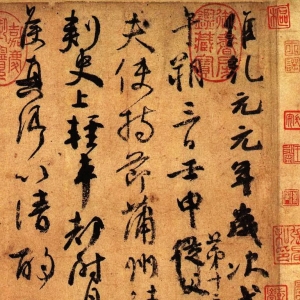 維乾元元年歲次戊
午朔三日壬申從父
第十三
夫使持節蒲州諸
刺史上輕車都尉丹
侯真卿以清酌